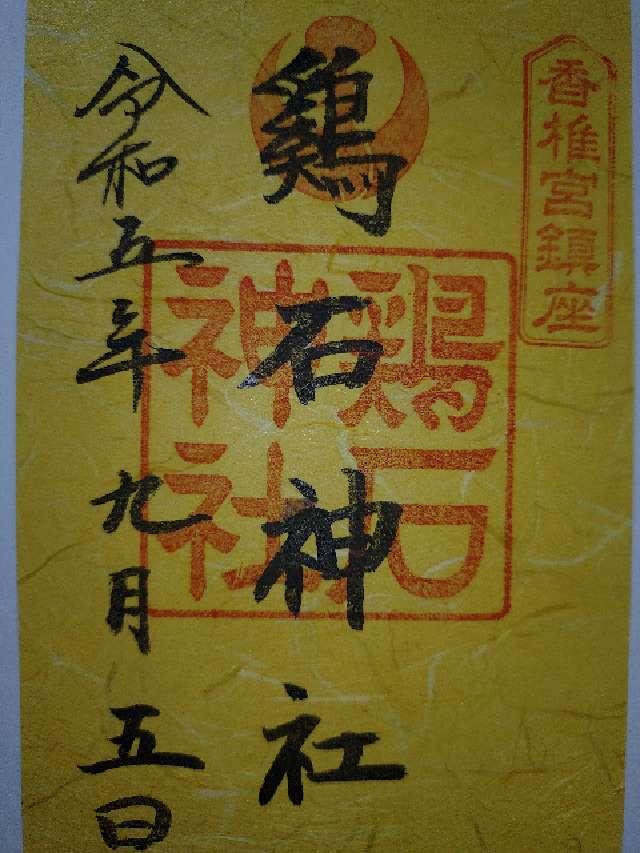 香椎宮鎮座
鶏石神社
鶏石
神社
令和五年九月五日